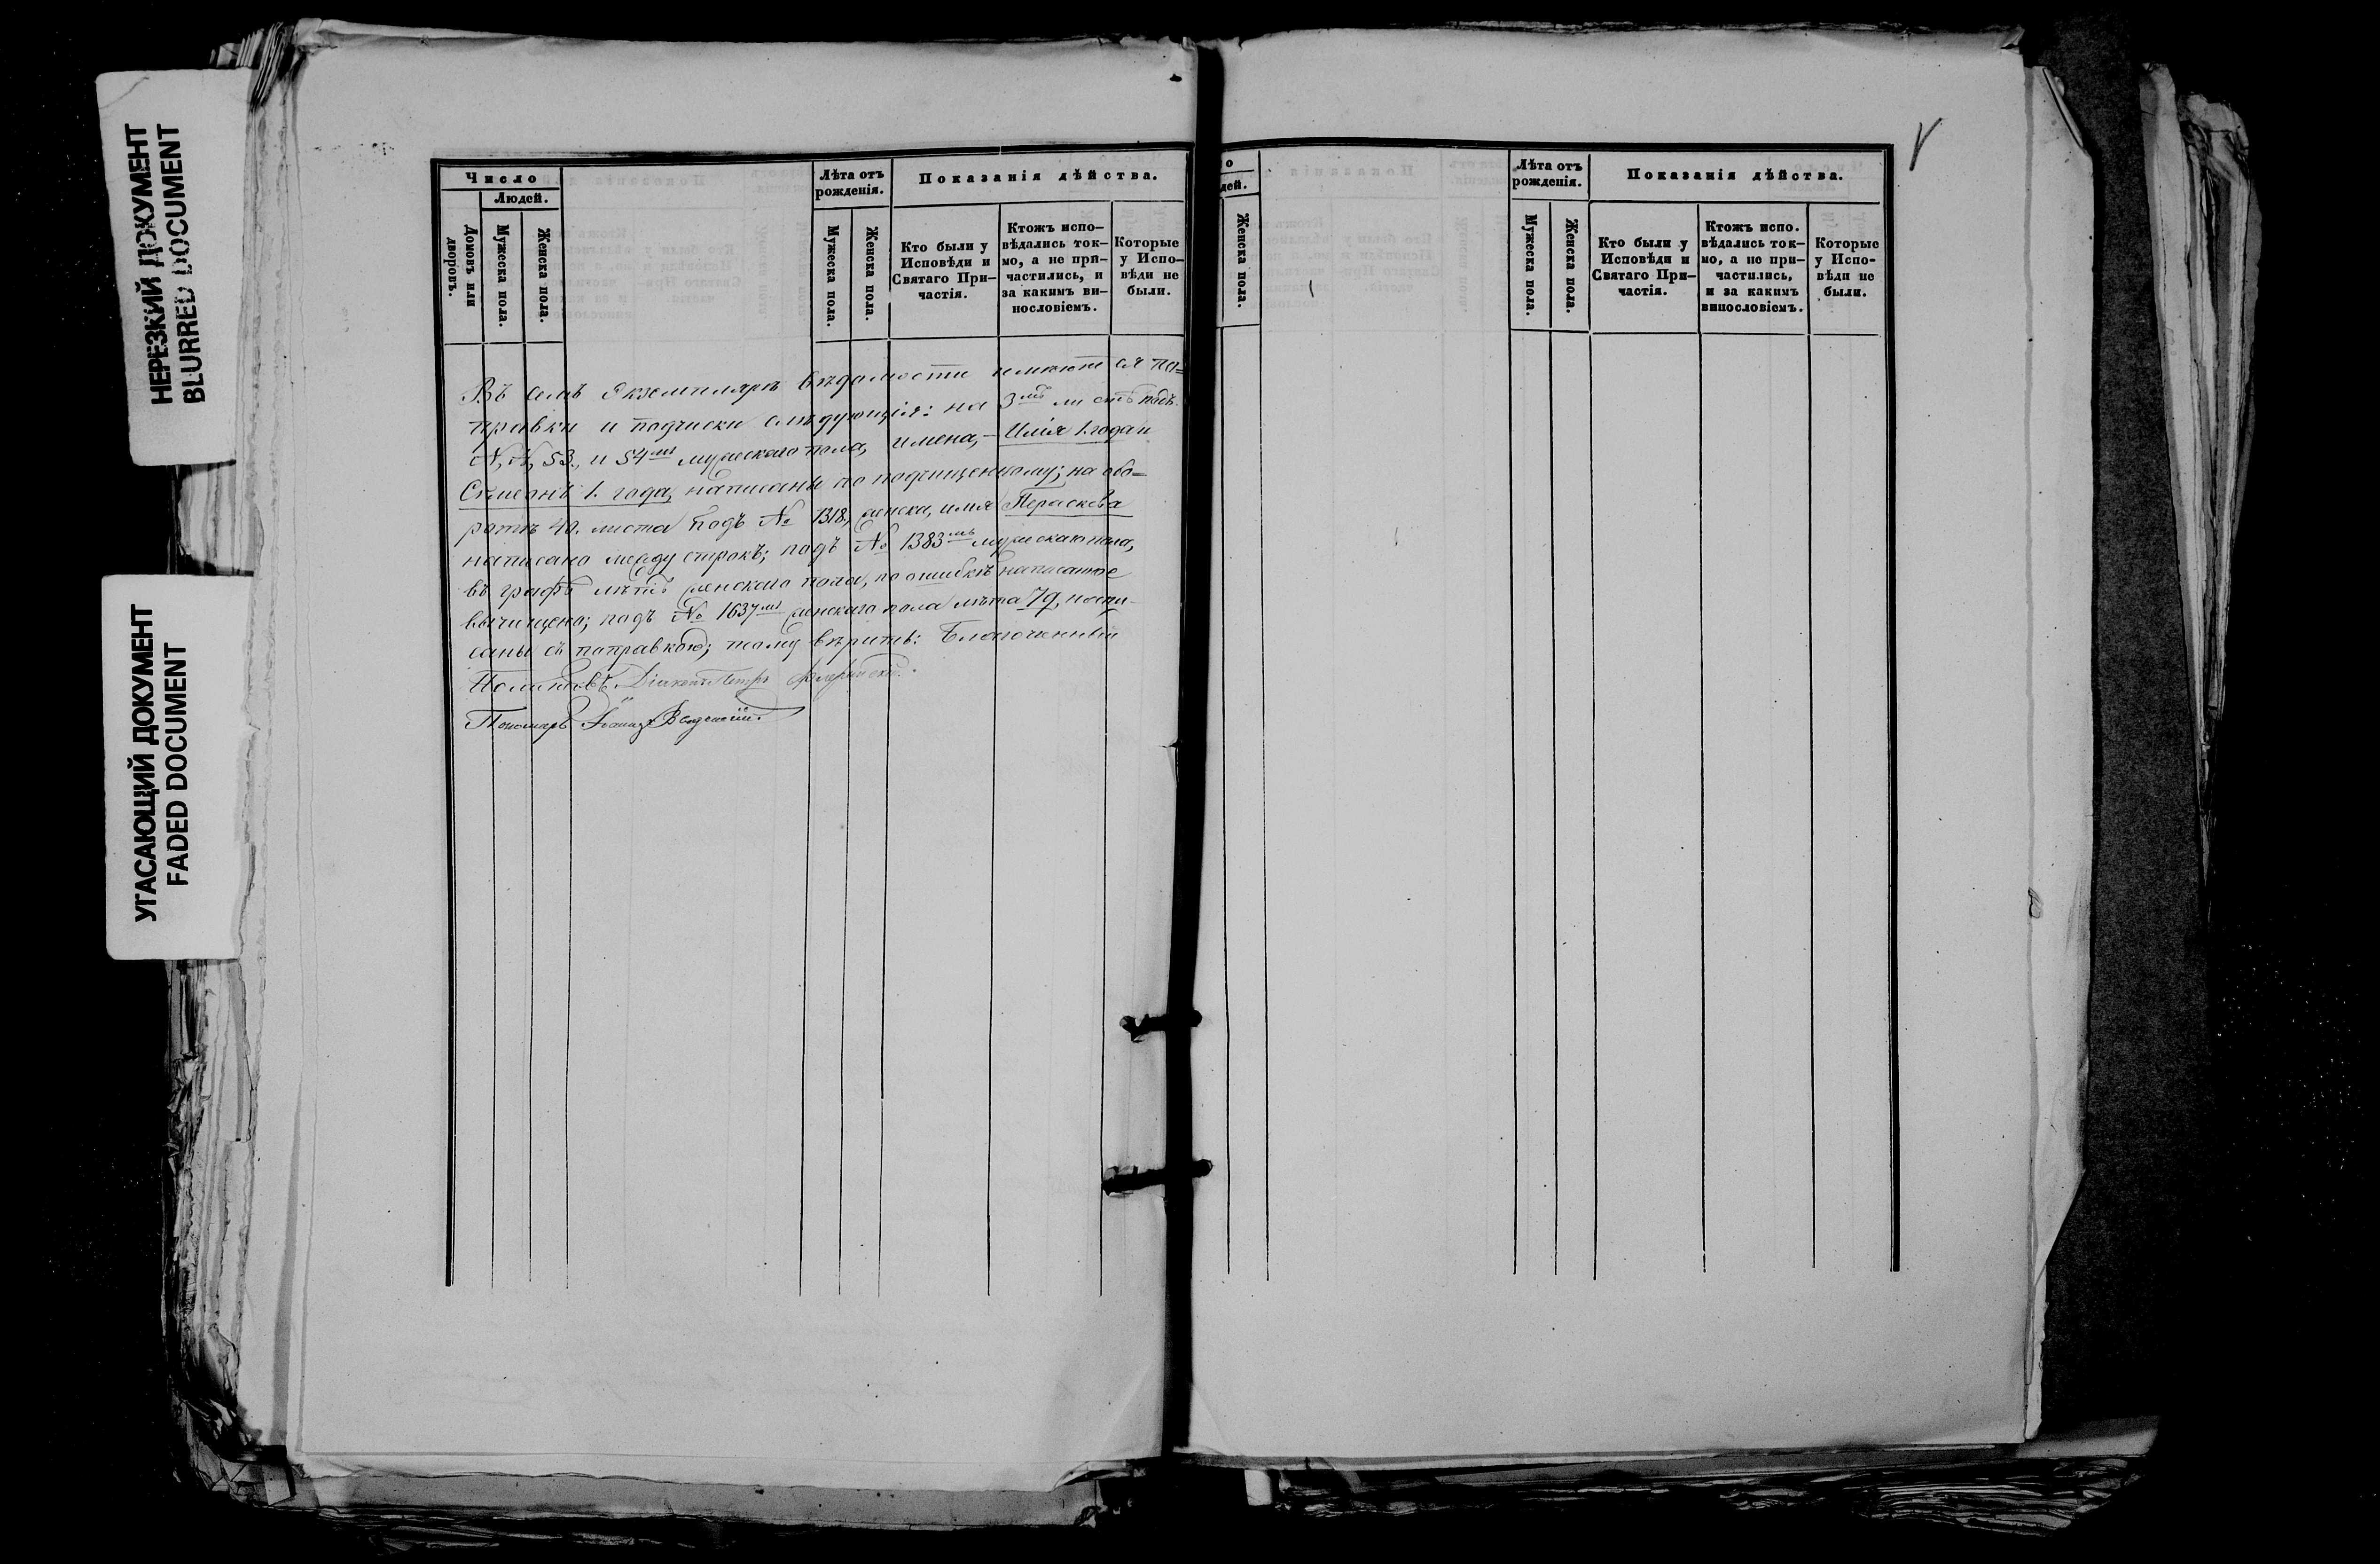 НЕРЕЗКИЙ ДОКУМЕНТ
BLURRED DOCUMENT
УГАСАЮЩИЙ ДОКУМЕНТ
FADED DOCUMENT
Число
Людей.
Домовъ или дворовъ.
Мужеска пола.
Женска пола.
Лѣта отъ рожденія.
Мужеска пола.
Женска пола.
Показанія дѣйства.
Кто были у
Исповѣди и
Святаго При-
частія.
Ктожъ испо-
вѣдались ток-
мо, а не при-
частились, и
за какимъ ви-
нословіемъ.
Которые
у Испо-
вѣди не
были.
Въ семъ Екземплярѣ вѣдомости имеютъся по=
правки и подчиски слѣдующія: на 3мъ листѣ подъ
№, №, 53., и 54мъ мужескаго пола, имена, – Илія 1. года и
Сѵмеонъ 1. года, написаны по подчищенному; на обо=
ротѣ 40. листа подъ № 1318., женска, имя Параскева
написано между строкъ; подъ № 1383мъ мужескаго пола,
въ графѣ лѣтъ женскаго пола, по ошибкѣ написанное
вычищено; подъ № 1637мъ женскаго пола лѣта 79, напи-
саны съ поправкою; тому вѣрить: Благочинный
Діаконъ Петръ
Пономарь Введенскій.
о
дей.
Женска пола.
Лѣта отъ
рожденія.
Мужеска пола.
Женска пола.
Показанія дѣйства.
Кто были у
Исповѣди и
Святаго При-
частія.
Ктожъ испо.
вѣдались ток-
мо, а не при-
частились,
и за какимъ
винословіемъ.
Которые
у Испо-
вѣди не
были.